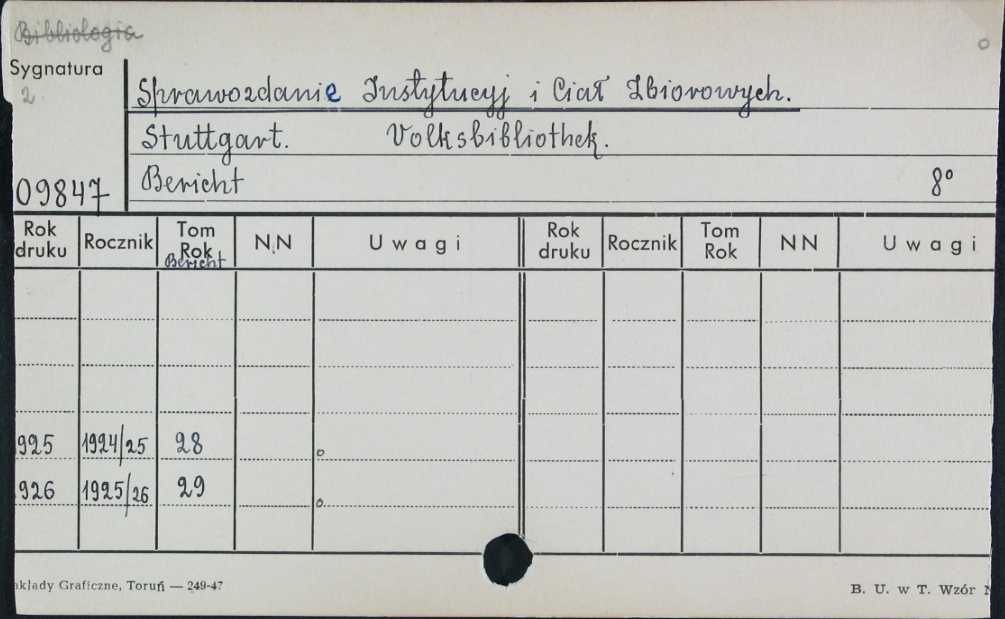 Bibliologia
Sygnatura
2
Sprawozdanie Instytucyj i Ciał Zbiorowych.
Stuttgart. Volksbibliothek.
Bericht 8°
09847
Rok druku Rocznik Tom Rok Bericht N.N Uwagi Rok druku Rocznik Tom Rok NN Uwagi
925 1924/25 28
926 1925/26 29
akłady Graficzne, Toruń — 249-47 B. U. w T. Wzór N